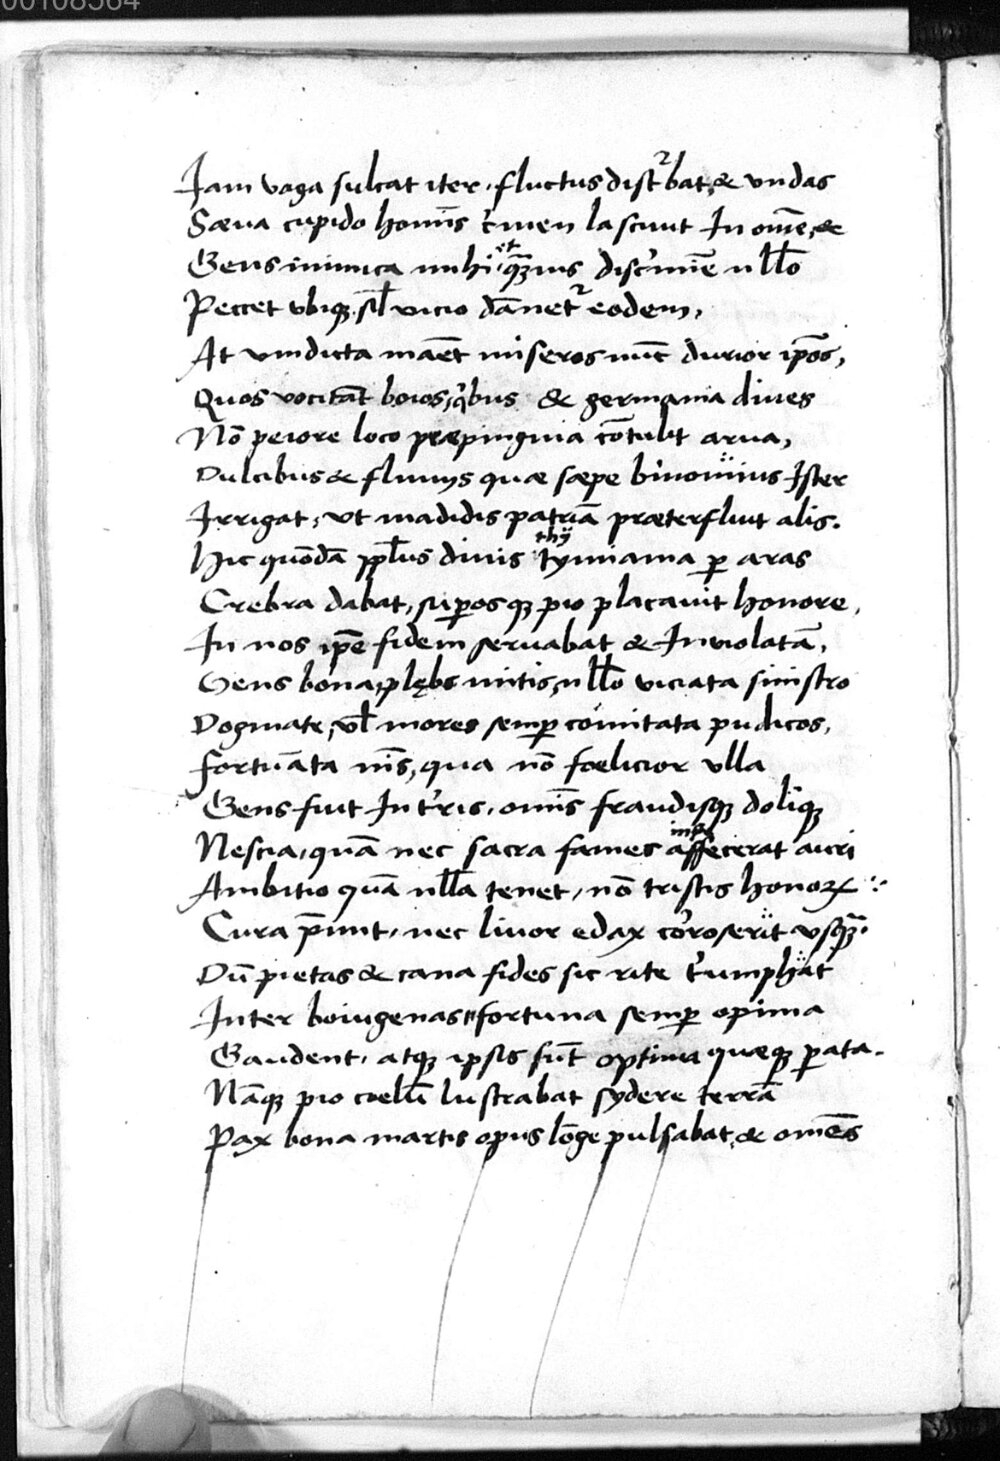 00108564
Iam vaga sulcat iter, fluctus dist²bat, & vndas
Sæua cupido homīs t'men lasciuit In omē, &
Gens inimica mihi, et qꝫuis discr'mīe nll̄o
Peccet vbiqꝫ, sl̄ vicio dānet² eodem,
At vindicta maēt miseros nūc durior ip̄os,
Quos vocitāt boios, qi'bus & germania diues
Nō peiore loco præpinguia cōtulit arua,
Dulcibus & fluuijs quæ sæpe binominis Ister
Irrigat, vt madidis patriā præterfluit alis.
Hic quōdā pp̄lus diuis thÿ tymiama ꝑ aras
Crebra dabat, suꝑosqꝫ pio placauit honore,
In nos ip̄e fidem seruabat & Inuiolatā,
Gens bona, plębs mitis, nll̄o viciata sinistro
Dogmate, vl̄ mores semꝑ comitata pudicos,
Fortūata nīs, qua nō foelicior vlla
Gens fuit In t'ris, omīs fraudisqꝫ doliqꝫ
Nescia, quā nec sacra fames affecerat auri
Ambitio quā nll̄a tenet, nō tristis honoꝝ
Cura p̄mit, nec liuor edax cōroserit vsqꝫ.
Dū pietas & cana fides sic rite t'umphāt
Inter boiugenas, fortuna semꝑ opima
Gaudent, atqꝫ ipsis sūt optima quæqꝫ ꝑata.
Nāqꝫ pio coelū lustrabat sydere terrā
Pax bona martis opus lōge pulsabat, & omēs